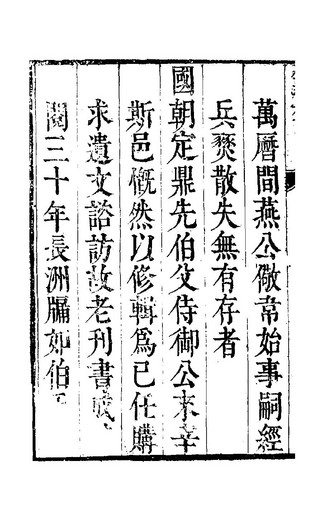 萬曆間燕公儆韋始事嗣經
兵燹散失無有存者
國朝定鼎先伯父侍御公来宰
斯邑慨然以修輯為己任購
求遺文諮訪故老刊書
閱三十年長洲牖如伯